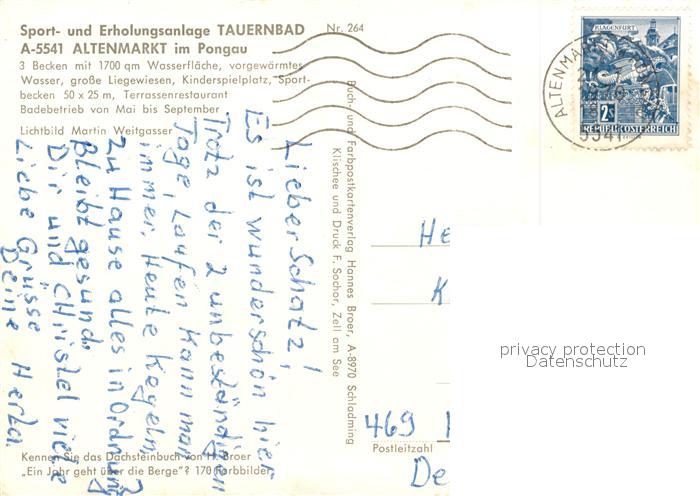 Sport- und Erholungsanlage TAUERNBAD
A-5541 ALTENMARKT im Pongau
3 Becken mit 1700 qm Wasserfläche, vorgewärmtes
Wasser, große Liegewiesen, Kinderspielplatz, Sport-
becken 50 x 25 m, Terrassenrestaurant
Badebetrieb von Mai bis September
Lichtbild Martin Weitgasser
Nr. 264
Lieber Schatz!
Es ist wunderschön hier
Trotz der 2 unbeständigen
Tage, Laufen kann man
immer. Heute Kegeln,
zu Hause alles in Ordnung?
Bleibt gesund.
Dir und Christel viele
Liebe Grüsse
Deine Herta.
Kennen Sie das Dachsteinbuch von H. Broer
„Ein Jahr geht über die Berge"? 170 Farbbilder
Buch- und Farbpostkartenverlag Hannes Broer, A-8970 Schladming
Klischee und Druck F. Sochor, Zell am See
KLAGENFURT
2 S
REPUBLIK ÖSTERREICH
ALTENMARKT
5541
He
K
469
Postleitzahl
De
privacy protection
Datenschutz